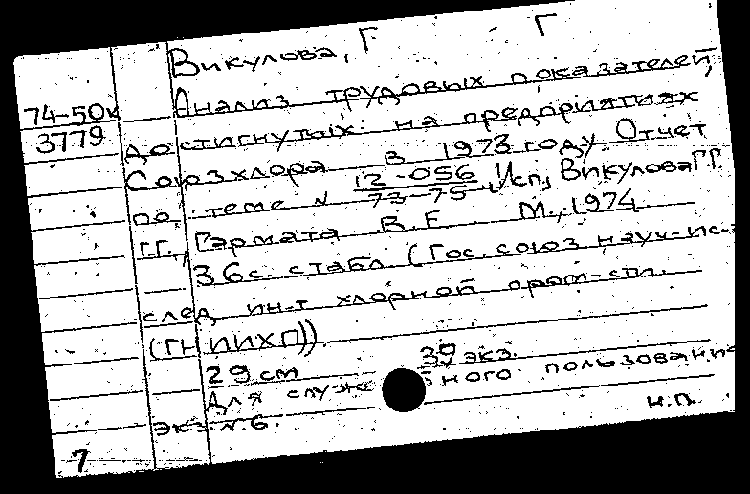 Викулова, Г Г
74-50к Анализ трудовых показателей,
3779 достигнутых на предприятиях
Союзхлора в 1973 году. Отчет
по теме № 12-056/73-75, Исп, Викулова ГГ
ГГ., Гармата В.Е М., 1974
36с. с табл. (Гос. союз науч-ис-
след ин-т хлорной пром-сти.
(ГНИИХП)).
29 см 39 экз.
Для служебного пользования
Экз № 6. н.п.
7